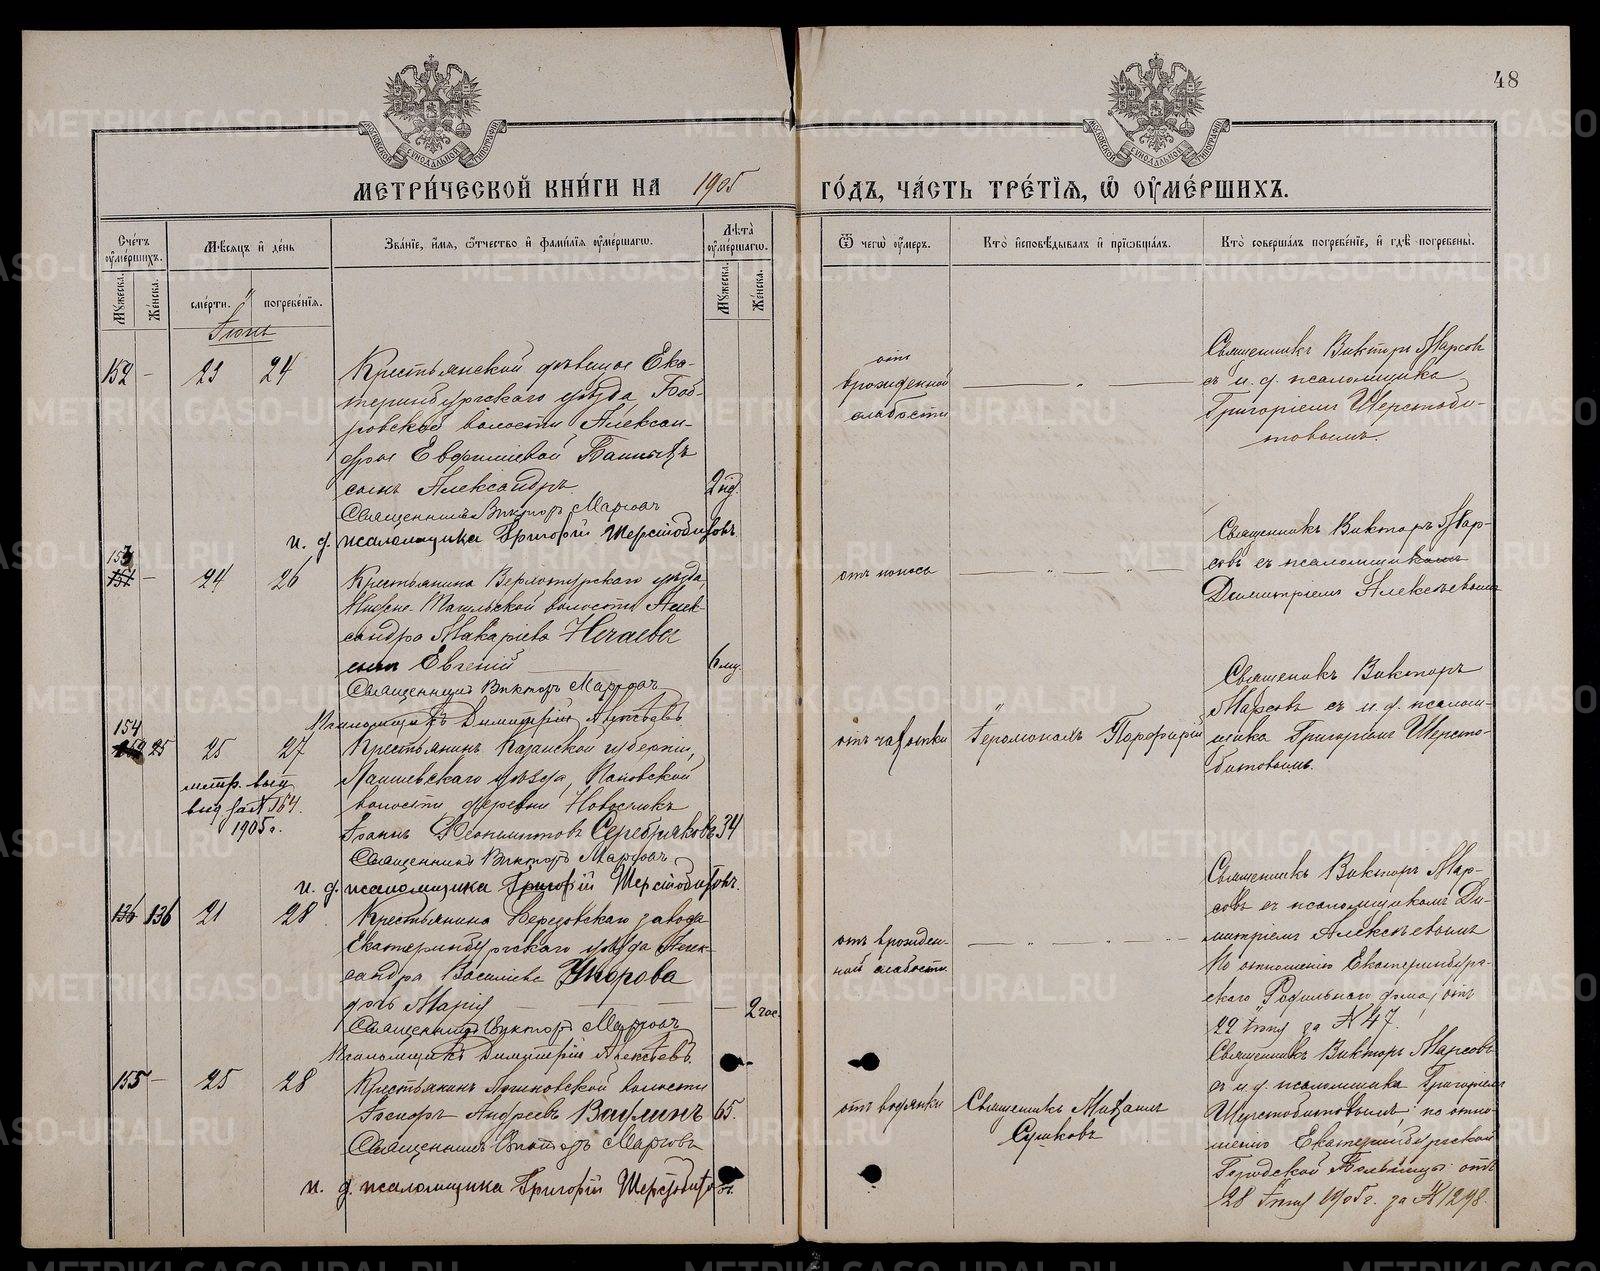 48
МЕТРИ́ЧЕСКОЙ КНИ́ГИ НА 1905 ГО́ДЪ, ЧА́СТЬ ТРЕ́ТІЯ, Ѽ ОУ҆МЕ́РШИХЪ.
Сче́тъ оу҆ме́ршихъ.
Мѣ́сяцъ и҆ де́нь
Зва́нїе, и҆́мя, ѻ҆́тчество и҆ фами́лїя оу҆ме́ршагѡ.
Лѣ́та оу҆ме́ршагѡ.
Ѿ чегѡ̀ оу҆́меръ.
Кто̀ и҆сповѣ́дывалъ и҆ прїѡбща́лъ.
Кто̀ соверша́лъ погребе́нїе, и҆ гдѣ̀ погребены̀.
Му́жеска.
Же́нска.
сме́рти.
погребе́нїя.
Му́жеска.
Же́нска.
Іюнь
152 — 23 24
Крестьянской дѣвицы Ека-
теринбургскаго уѣзда, Боб-
ровской волости Алексан-
дры Евфиміевой
сынъ Александръ
2 нд.
Священникъ Викторъ Марсовъ
и. д. псаломщика Григорій Шерстобитовъ.
отъ
врожденной
слабости
Священникъ Викторъ Марсовъ
съ и. д. псаломщика
Григоріемъ Шерстоби-
товымъ.
153
— 24 26
Крестьянина Верхотурскаго уѣзда,
Нижне-Тагильской волости Алек-
сандра Макаріева Нечаева
сынъ Евгеній
6 мц.
Священникъ Викторъ Марсовъ
Псаломщикъ Димитрій Алексѣевъ
отъ поноса
Священникъ Викторъ Мар-
совъ съ псаломщикомъ
Димитріемъ Алексѣевымъ
154
25 27
метр. вып.
выд. за № 164.
1905 г.
Крестьянинъ Казанской губерніи,
Лаишевскаго уѣзда,
волости деревни
Іоаннъ Серебряковъ 34
Священникъ Викторъ Марсовъ
и. д. псаломщика Григорій Шерстобитовъ.
отъ чахотки
Іеромонахъ Порфирій
Священикъ Викторъ
Марсовъ съ и. д. псалом-
щика Григоріемъ Шерсто-
битовымъ.
136 136 21 28
Крестьянина Березовскаго завода
Екатеринбургскаго уѣзда Алек-
сандра Василіева Упорова
дочь Марія
— 2 час.
Священникъ Викторъ Марсовъ
Псаломщикъ Димитрій Алексѣевъ.
отъ врожден-
ной слабости
Священникъ Викторъ Мар-
совъ съ псаломщикомъ Ди-
митріемъ Алексѣевымъ
По отношенію Екатеринбург-
скаго Родильнаго дома, отъ
22 Іюня за № 47.
155 — 25 28
Крестьянинъ Логиновской волости
Андреевъ 65.
Священникъ Викторъ Марсовъ
и. д. псаломщика Григорій Шерстобитовъ.
отъ водянки
Священникъ Михаилъ
Сушковъ
Священникъ Викторъ Марсовъ
съ и. д. псаломщика Григоріемъ
Шерстобитовымъ: по отно-
шенію Екатеринбургской
Городской Больницы отъ
28 Іюня 1905 г. за № 1298.
METRIKI.GASO-URAL.RU